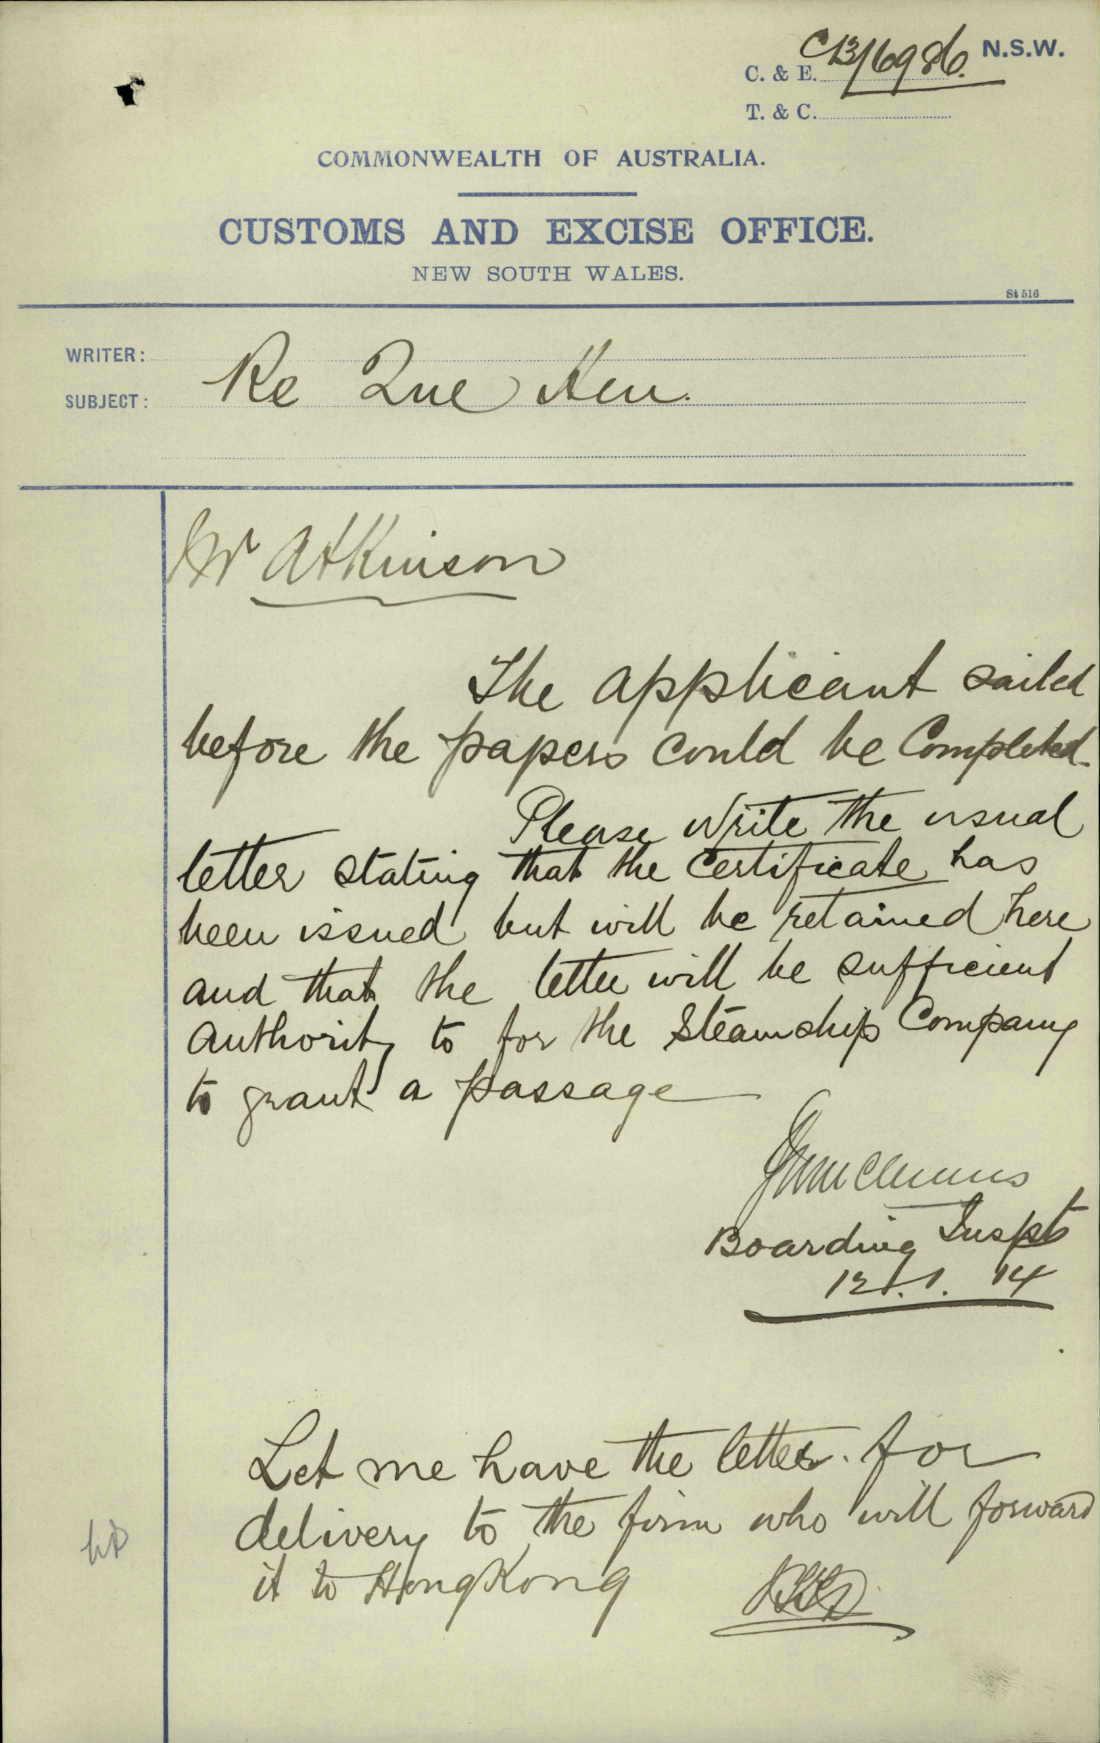 C13/6986. N.S.W.
C. & E.
T. & C.
COMMONWEALTH OF AUSTRALIA.
CUSTOMS AND EXCISE OFFICE.
NEW SOUTH WALES.
St 516
WRITER:
Re Que Ken.
SUBJECT:
Mr Atkinson
The applicant sailed
before the papers could be Completed.
Please write the usual
letter stating that the Certificate has
been issued but will be retained here
and that the letter will be sufficient
authority to for the Steamship Company
to grant a passage
Boarding Inspt
12.1.14
Let me have the letter for
delivery to the firm who will forward
it to HongKong